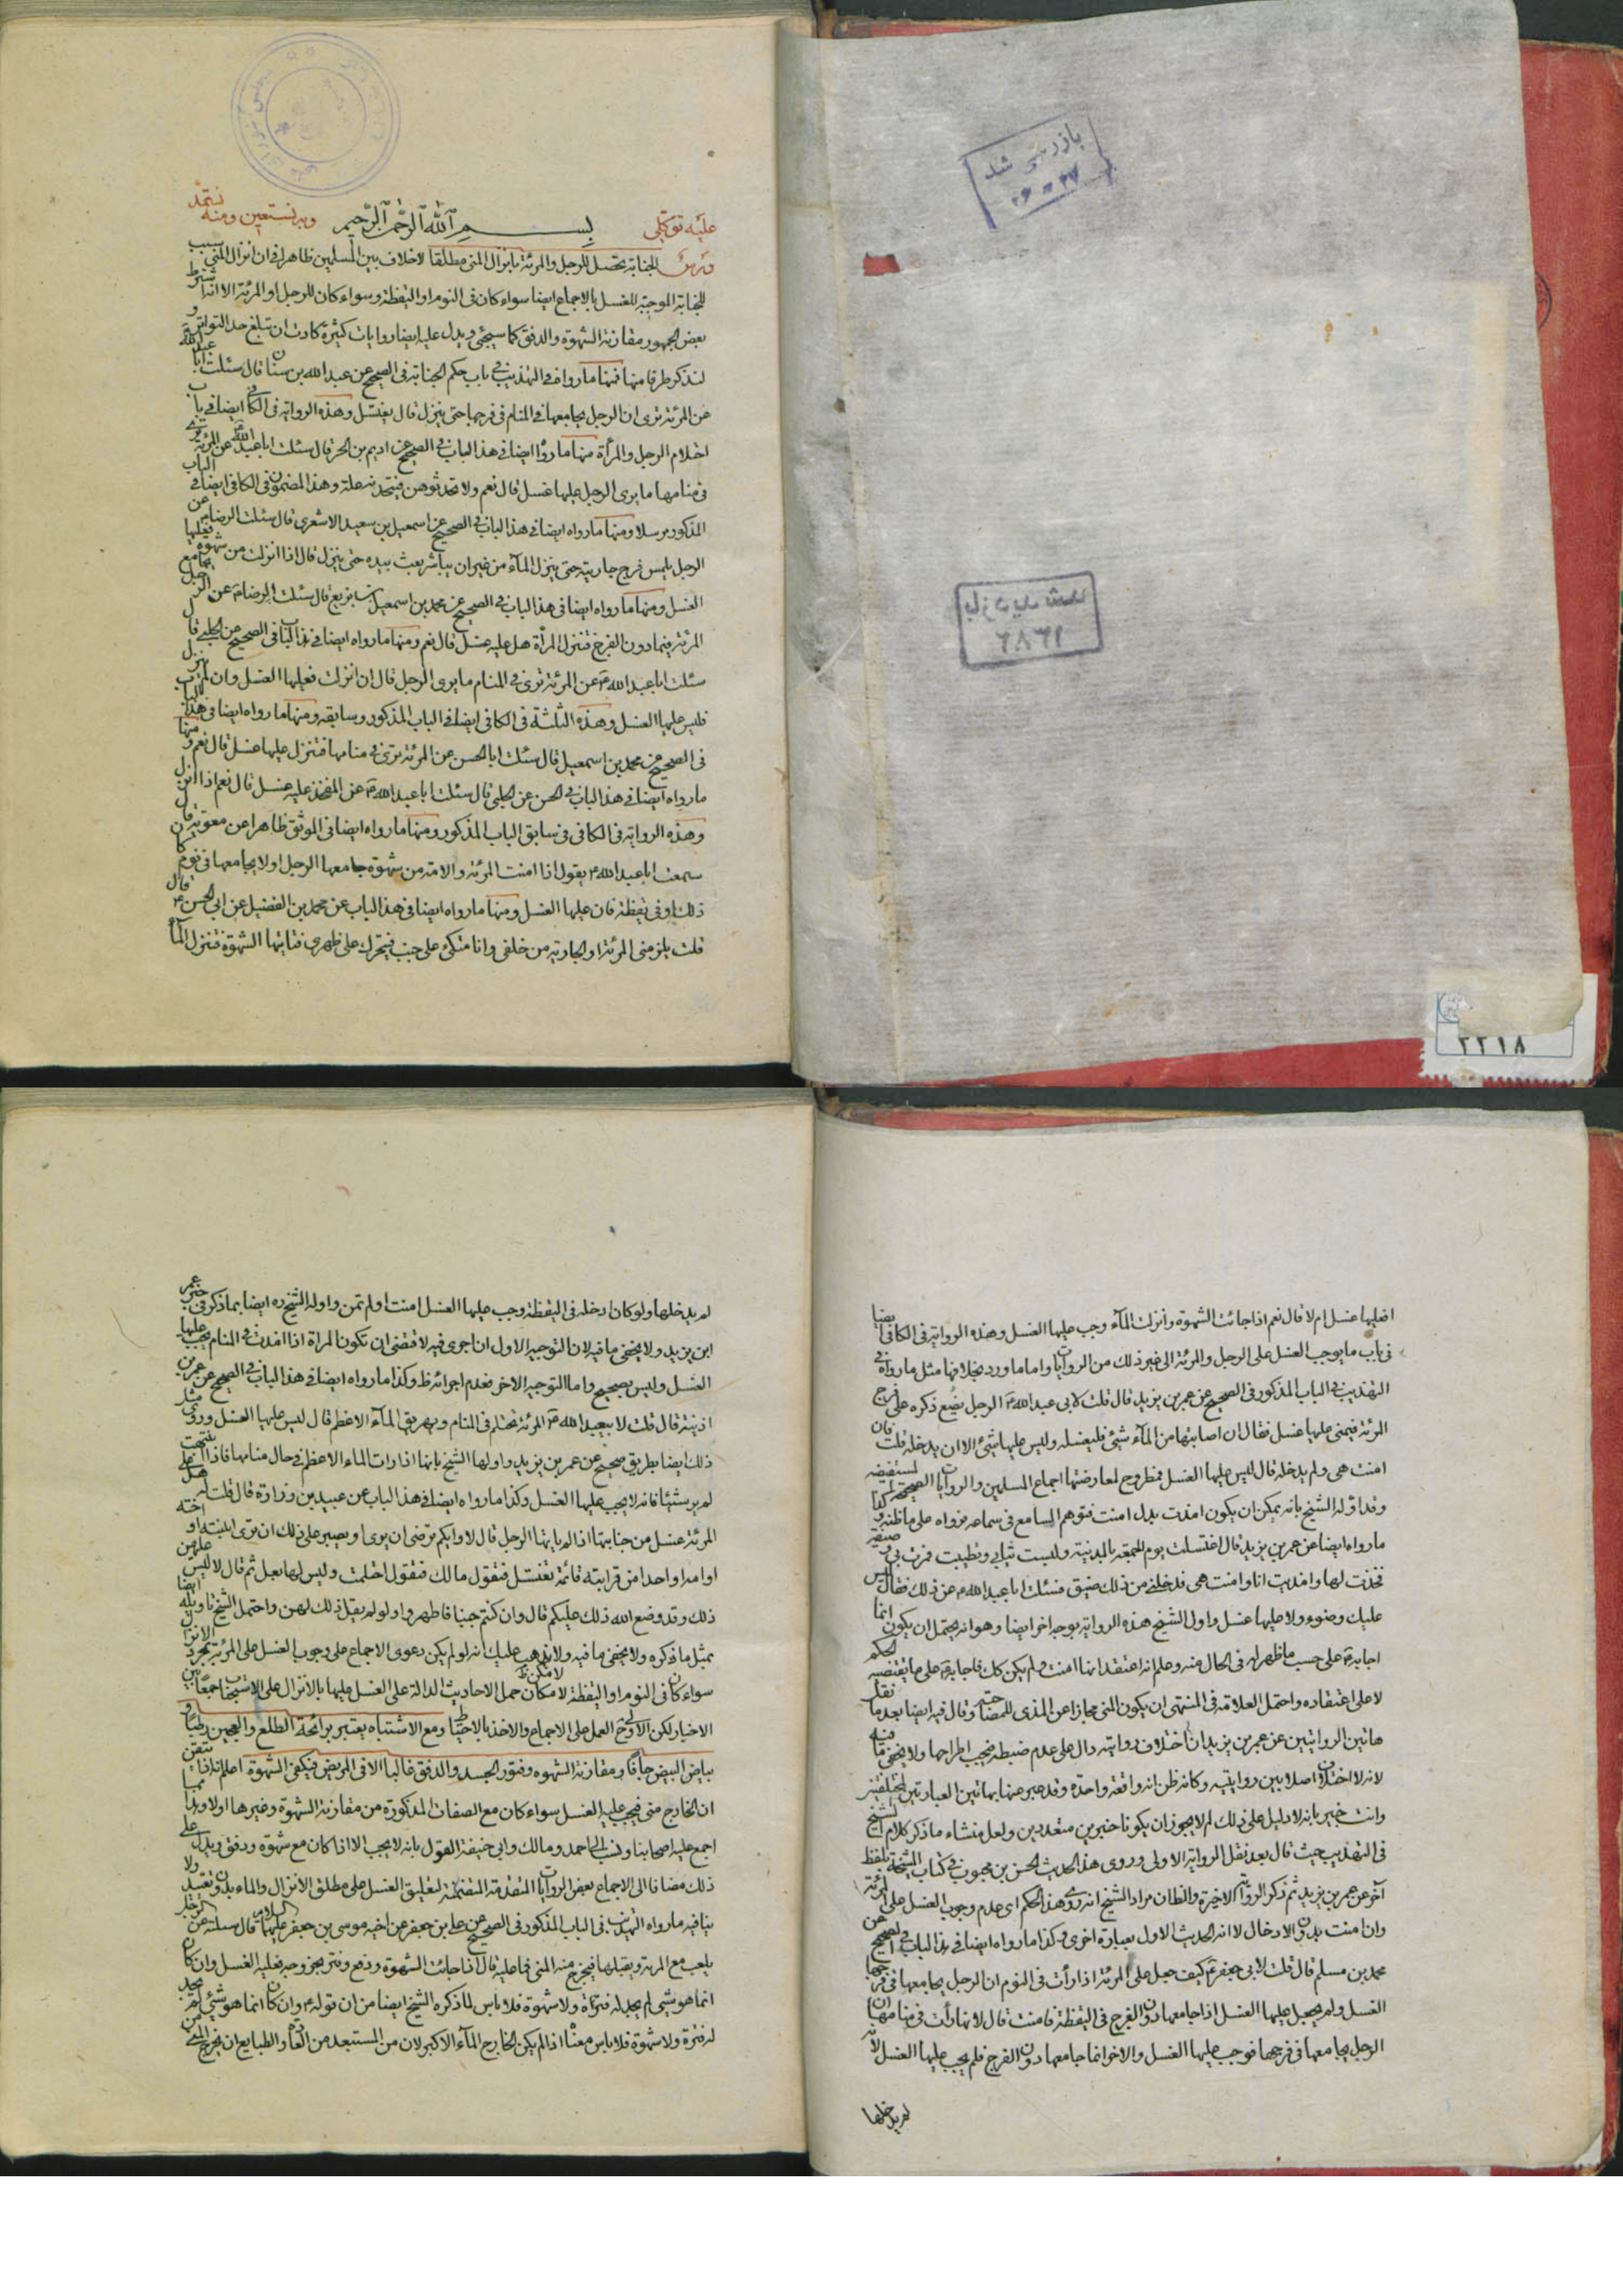 بازرسی شد
۳۷ - ۲۶
بازدید شد
۶۸۶۲
۲۲۱۸
عليه توكلي بسم الله الرحمن الرحيم وبه نستعين ومنه نستمد
الجنابة تحصل للرجل والمرئة بانزال المني مطلقا لا خلاف بين المسلمين ظاهرا في ان انزال المني سبب
للجنابة الموجبة للغسل بالاجماع ايضا سواء كان في النوم او اليقظة وسواء كان للرجل او المرئة الا انه اشترط
بعض الجمهور مقارنة الشهوة والدفق كما سيجئ ويدل عليه ايضا روايات كثيرة كادت ان تبلغ حد التواتر و
لنذكر طرفا منها فمنها ما رواه في التهذيب في باب حكم الجنابة في الصحيح عن عبد الله بن سنان قال سئلت ابا عبد الله
عن المرئة ترى ان الرجل يجامعها في المنام في فرجها حتى ينزل قال يغتسل وهذه الرواية في الكافي ايضا في باب
احتلام الرجل والمرأة منها ما رواه ايضا في هذا الباب في الصحيح عن اديم بن الحر قال سئلت ابا عبد الله عن المرئة ترى
في منامها ما يرى الرجل عليها غسل قال نعم ولا تحدثوهن فيتخذنه علة وهذا المضمون في الكافي ايضا في الباب
المذكور مرسلا ومنها ما رواه ايضا في هذا الباب في الصحيح عن اسمعيل بن سعيد الاشعري قال سئلت الرضا عن
الرجل يلمس فرج جاريته حتى ينزل الماء من غير ان يباشر يعبث بيده حتى ينزل قال اذا انزلت من شهوة فعليها
الغسل ومنها ما رواه ايضا في هذا الباب في الصحيح عن محمد بن اسمعيل بن بزيع قال سئلت الرضا عن الرجل يجامع
المرئة فيما دون الفرج فتنزل المرأة هل عليه غسل قال نعم ومنها ما رواه ايضا في هذا الباب في الصحيح عن الحلبي قال
سئلت ابا عبد الله عن المرئة ترى في المنام ما يرى الرجل قال ان انزلت فعليها الغسل وان لم تنزل
فليس عليها الغسل وهذه الثلثة في الكافي ايضا في الباب المذكور وسابقه ومنها ما رواه ايضا في هذا الباب
في الصحيح عن محمد بن اسمعيل قال سئلت ابا الحسن عن المرئة ترى في منامها فتنزل عليها غسل قال نعم ومنها
ما رواه ايضا في هذا الباب في الحسن عن الحلبي قال سئلت ابا عبد الله عن المفخذ عليه غسل قال نعم اذا انزل
وهذه الرواية في الكافي في سابق الباب المذكور ومنها ما رواه ايضا في الموثق ظاهرا عن معوية قال
سمعت ابا عبد الله يقول اذا امنت المرئة والامة من شهوة جامعها الرجل او لا يجامعها في نوم كان
ذلك او في يقظة فان عليها الغسل ومنها ما رواه ايضا في هذا الباب عن محمد بن الفضيل عن ابي الحسن قال
قلت يلزمني المرئة او الجارية من خلفي وانا متكئ على جنب فيتحرك على ظهري فتاتيها الشهوة فتنزل الماء
افعليها غسل ام لا قال نعم اذا جائت الشهوة وانزلت الماء وجب عليها الغسل وهذه الرواية في الكافي ايضا
في باب ما يوجب الغسل على الرجل والمرئة الى غير ذلك من الروايات واما ما ورد بخلافها مثل ما رواه في
التهذيب في الباب المذكور في الصحيح عن عمر بن يزيد قال قلت لابي عبد الله الرجل يضع ذكره على فرج
المرئة فيمني عليها غسل فقال ان اصابها من الماء شئ فليغسله وليس عليها شئ الا ان يدخله قلت فان
امنت هي ولم يدخله قال ليس عليها الغسل فمطروح لمعارضتها اجماع المسلمين والروايات الصحيحة المستفيضة
وقد اوله الشيخ بانه يمكن ان يكون امذت بدل امنت فتوهم السامع في سماعه فرواه على ما ظنه وكذا
ما رواه ايضا عن عمر بن يزيد قال اغتسلت يوم الجمعة بالمدينة ولبست ثيابي وتطيبت فمرت بي وصيفة
ففخذت لها وامذيت انا وامنت هي فدخلني من ذلك ضيق فسئلت ابا عبد الله عن ذلك فقال ليس
عليك وضوء ولا عليها غسل واول الشيخ هذه الرواية بوجه اخر ايضا وهو انه يحتمل ان يكون انما
اجابه على حسب ما ظهر له في الحال منه وعلم انه اعتقد انها امنت ولم يكن كك فاجابه على ما يقتضيه الحكم
لا على اعتقاده واحتمل العلامة في المنتهى ان يكون المني مجازا عن المذي للمصاحبة وقال فيه ايضا بعد ما نقل
هاتين الروايتين عن عمر بن يزيد ان اختلاف روايته دال على عدم ضبطه فيجب اطراحها ولا يخفى ما فيه
لانه لا اختلاف اصلا بين روايتيه وكانه ظن انه واقعة واحدة وقد عبر عنها بهاتين العبارتين المختلفتين
وانت خبير بانه لا دليل على ذلك لم لا يجوز ان يكونا خبرين متعددين ولعل منشاء ما ذكر كلام الشيخ
في التهذيب حيث قال بعد نقل الرواية الاولى وروى هذا الحديث الحسن بن محبوب في كتاب المشيخة بلفظ
آخر عن عمر بن يزيد ثم ذكر الرواية الاخيرة والظان مراد الشيخ انه روى هذا الحكم اي عدم وجوب الغسل على المرئة
وان امنت بدون الادخال لا انه الحديث الاول بعبارة اخرى وكذا ما رواه ايضا في هذا الباب في الصحيح عن
محمد بن مسلم قال قلت لابي جعفر كيف جعل على المرئة اذا رأت في النوم ان الرجل يجامعها في فرجها
الغسل ولم يجعل عليها الغسل اذا جامعها دون الفرج في اليقظة فامنت قال لانها رأت في منامها ان
الرجل يجامعها في فرجها فوجب عليها الغسل والاخر انما جامعها دون الفرج فلم يجب عليها الغسل لانه
لم يدخلها
لم يدخلها ولو كان ادخله في اليقظة وجب عليها الغسل امنت او لم تمن واوله الشيخ ره ايضا بما ذكر في خبر عمر
ابن يزيد ولا يخفى ما فيه لان التوجيه الاول ان اجرى فيه لاقتضى ان تكون المرأة اذا امذت في المنام يجب عليها
الغسل وليس بصحيح واما التوجيه الاخر فعدم اجرائه ظ وكذا ما رواه ايضا في هذا الباب في الصحيح عن عمر بن
اذينة قال قلت لابي عبد الله المرئة تحتلم في المنام ويهريق الماء الاعظم قال ليس عليها الغسل وروى مثل
ذلك ايضا بطريق صحيح عن عمر بن يزيد واولها الشيخ بانها اذا رات الماء الاعظم في حال منامها فاذا انتبهت
لم ير شيئا فانه لا يجب عليها الغسل وكذا ما رواه ايضا في هذا الباب عن عبيد بن زرارة قال قلت له هل على
المرئة غسل من جنابتها اذا لم ياتها الرجل قال لا وايكم يرضى ان يرى او يصبر على ذلك ان يرى ابنته او اخته
او امه او احدا من قرابته قائمة تغتسل فتقول مالك فتقول احتلمت وليس لها بعل ثم قال لا ليس عليهن
ذلك وقد وضع الله ذلك عليكم قال وان كنتم جنبا فاطهروا ولم يقل ذلك لهن واحتمل الشيخ تاويله ايضا
بمثل ما ذكره ولا يخفى ما فيه ولا يذهب عليك انه لو لم يكن دعوى الاجماع على وجوب الغسل على المرئة بمجرد الانزال
سواء كان في النوم او اليقظة لامكن حمل الاحاديث الدالة على الغسل عليها بالانزال على الاستحباب جمعا بين
الاخبار لكن الاولى ح العمل على الاجماع والاخذ بالاحتياط ومع الاشتباه يعتبر برائحة الطلع والعجين رطبا و
بياض البيض جافا ومقارنة الشهوه وفتور الجسد والدفق غالبا الا في المريض فيكفي الشهوة اعلم انه اذا تيقن
ان الخارج مني فيجب عليه الغسل سواء كان مع الصفات المذكورة من مقارنة الشهوة وغيرها اولا وهذا مما
اجمع عليه اصحابنا ونسب الى احمد ومالك وابي حنيفة القول بانه لا يجب الا اذا كان مع شهوة ودفق ويدل على
ذلك مضافا الى الاجماع بعض الروايات المتقدمة المتضمنة لتعليق الغسل على مطلق الانزال والماء بدون تقييد ولا
ينافيه ما رواه التهذيب في الباب المذكور في الصحيح عن علي بن جعفر عن اخيه موسى بن جعفر عليهما السلام قال سئلته عن الرجل
يلعب مع المرئة ويقبلها فيخرج منه المني فما عليه قال اذا جائت الشهوة ودفع وفتر بخروجه فعليه الغسل وان كان
انما هو شئ لم يجد له فترة ولا شهوة فلا باس لما ذكره الشيخ ايضا من ان قوله وان كان انما هو شئ لم يجد
له فترة ولا شهوة فلا باس معناه اذا لم يكن الخارج الماء الاكبر لان من المستبعد من العادة والطبايع ان يخرج المني